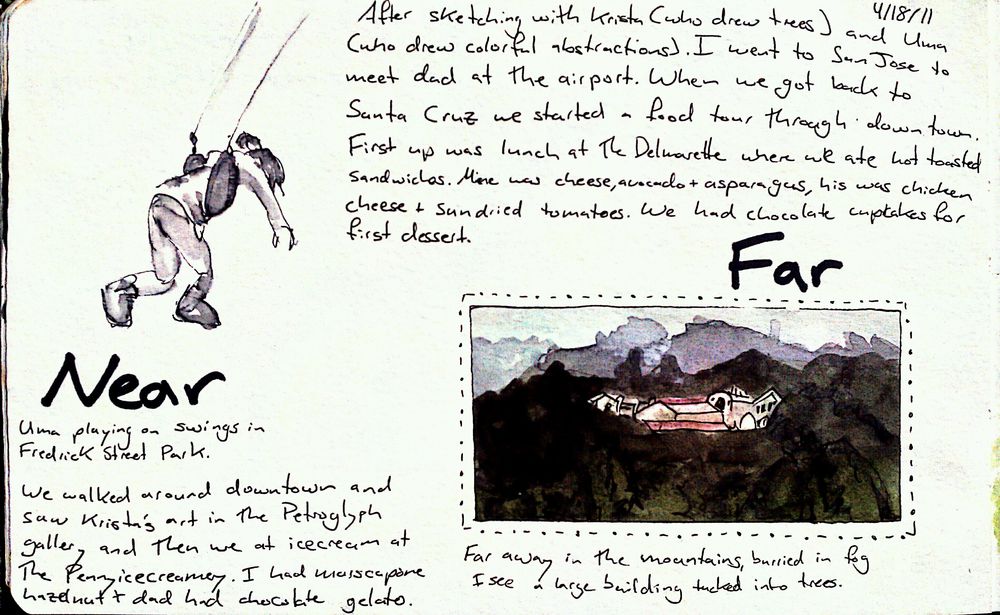 4/18/11
After sketching with Krista (who drew trees) and Uma
(who drew colorful abstractions). I went to San Jose to
meet dad at the airport. When we got back to
Santa Cruz we started a food tour through downtown.
First up was lunch at The Delmarette where we ate hot toasted
sandwiches. Mine was cheese, avocado + asparagus, his was chicken
cheese + sundried tomatoes. We had chocolate cuptakes for
first dessert.
Far
Far away in the mountains, burried in fog
I see a large building tucked into trees.
Near
Uma playing on swings in
Fredrick Street Park.
We walked around downtown and
saw Krista's art in the Petroglyph
gallery and then we at icecream at
The Pennyicecreamery. I had masscapone
hazelnut + dad had chocolate gelato.